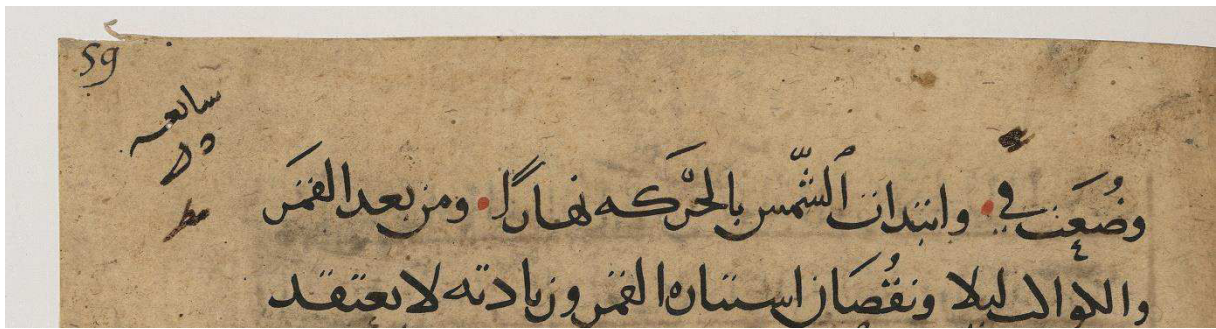 59
سابعه
وضُعَت في • وابتدات الشّمس بالحَرَكه نهاراً • ومن بعد القمَر
والكواكب ليلا ونقُصَان استناره القمر وزيادته لا يعتقد